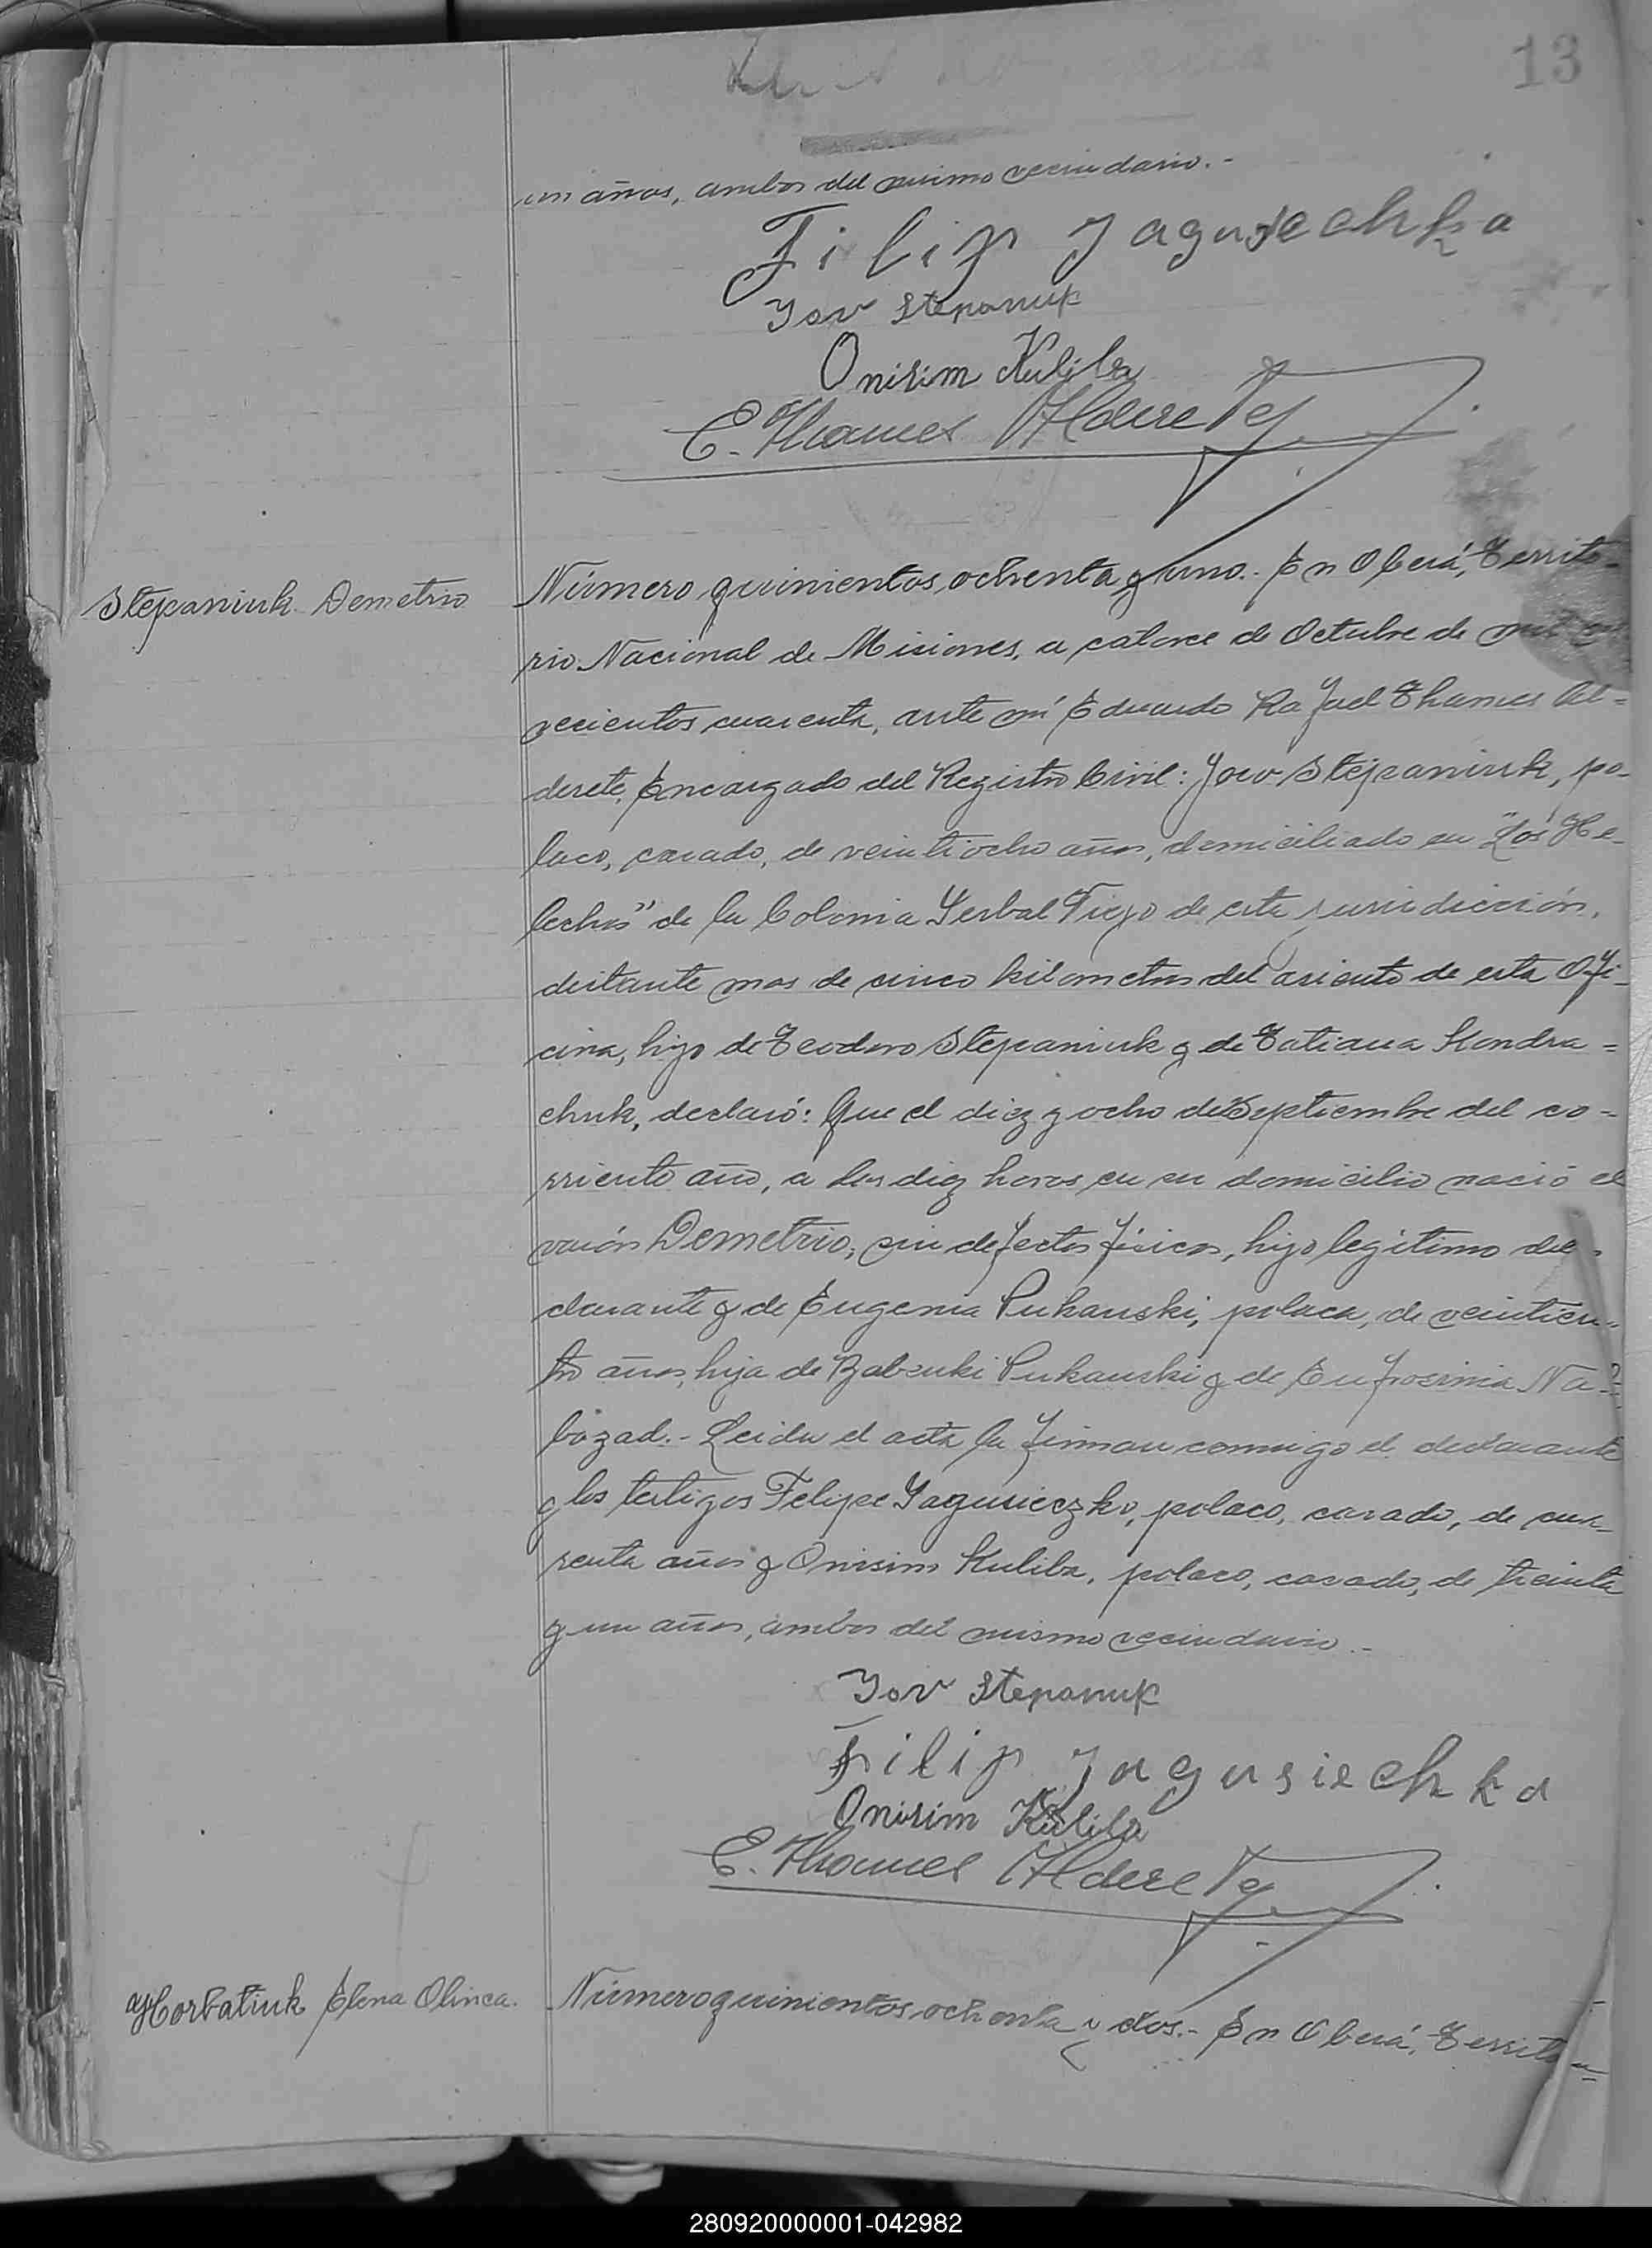 13
un años, ambos del mismo vecindario.-
Filip Jagusiechka
Jov Stepanuk
Onisim Kuliba
E. Thames Alderete
Stepaniuk Demetrio
Número quinientos ochenta y uno.- En Oberá, Territo-
rio Nacional de Misiones, a catorce de Octubre de mil no
vecientos cuarenta, ante mí Eduardo Rafael Thames Al=
derete, Encargado del Registro Civil: Jow Stepaniuk, po-
laco, casado, de veintiocho años, domiciliado en "Los He-
lechos" de la Colonia Yerbal Viejo de esta jurisdicción,
distante mas de cinco kilometros del asiento de esta Ofi-
cina, hijo de Teodoro Stepaniuk y de Tatiana Kondra=
chuk, declaró: Que el diez y ocho de Septiembre del co-
rriente año, a las diez horas en su domicilio nació el
varón Demetrio, sin defectos físicos, hijo legítimo del
clarante y de Eugenia Pukanski, polaca, de veinticua-
tro años, hija de Pukanski y de Eufrosinia Na-
bozad.- Leida el acta la firman conmigo el declarante
y los testigos Felipe Jagusieczko, polaco, casado, de cua-
renta años y Onisim Kuliba, polaco, casado, de treinta
y un años, ambos del mismo vecindario.-
Jov Stepanuk
Filip Jagusiechka
Onisim Kuliba
E. Thames Alderete
Horbatiuk Elena Olinca.
Número quinientos ochenta y dos.- En Oberá, Territo-
280920000001-042982